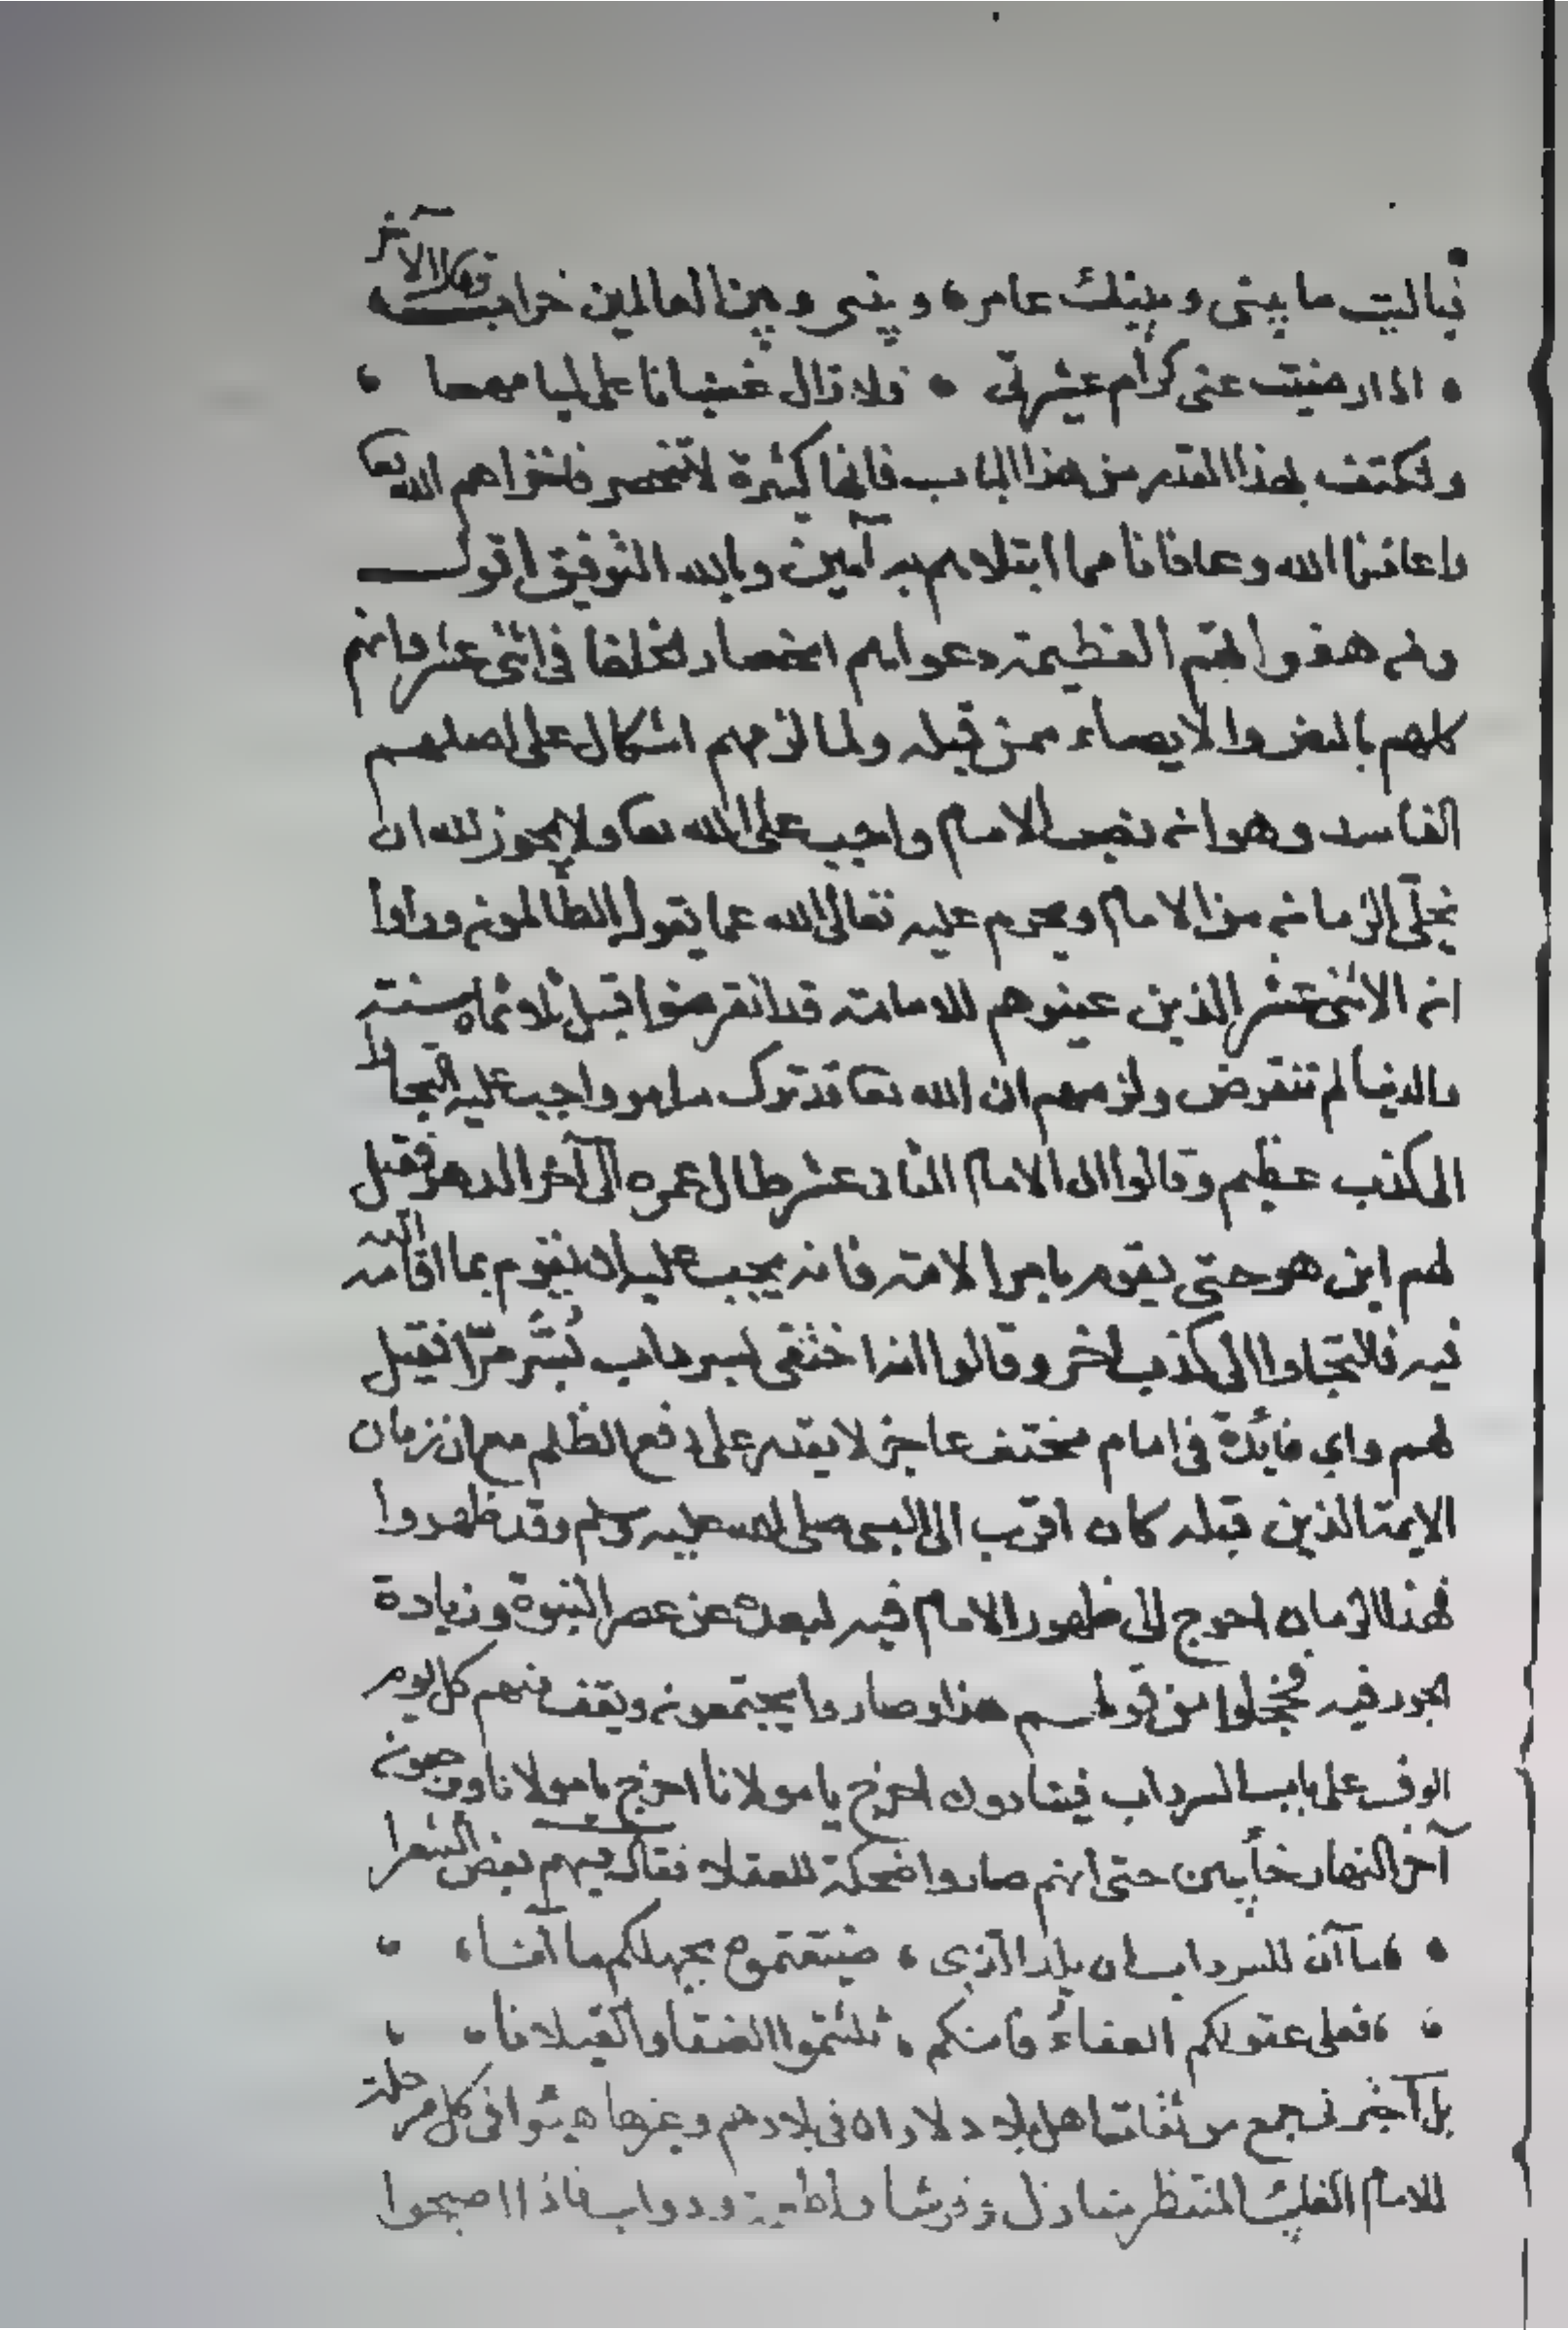 فياليت ما بيني وبينك عامره وبيني وبين العالمين خراب وقال الآخر
اذا رضيت عني كرام عشيرتي فلا زال غضبانا على لئامها
ولنكتف بهذا القدر من هذا الباب فانها كثيرة لا تنحصر فاخزاهم الله تعا
واعاذنا الله وعافانا مما ابتلاهم به آمين وبالله التوفيق اقول
ومن هفواتهم العظيمة دعواهم انحصار الخلفا في اثنى عشر وانهم
كلهم بالنص والايصاء ممن قبله ولما لزمهم اشكال على اصلهم
الفاسد وهو انه نصب الامام واجب على الله تعا ولا يجوز لله ان
يخلي الزمان من الامام ويحرم عليه تعالى الله عما يقول الظالمون وراوا
ان الاثنى عشر الذين عينوهم للامامة قد انقرضوا قبل ثلاثماية سنة
والدنيا لم تنقرض ولزمهم ان الله تعا قد ترك ما هو واجب عليه التجاوا
الى كذب عظيم وقالوا ان الامام الثاني عشر طال عمره الى آخر الدهر فقيل
لهم اين هو حتى يقوم بامر الامة فانه يجب عليه ان يقوم بما اقامه الله
فيه فالتجاوا الى كذب اخر وقالوا انه اختفى بسرداب بسر مرا فقيل
لهم واي فائدة في امام مختف عاجز لا يقدر على دفع الظلم مع ان زمان
الايمة الذين قبله كان اقرب الى النبي صلى الله عليه وسلم وقد ظهروا
فهذا الزمان احوج الى ظهور الامام فيه لبعده عن عصر النبوة وزيادة
الجور فيه فخجلوا من قولهم هذا وصاروا يجتمعون ويقف منهم كل يوم
الوف على باب السرداب فينادون اخرج يا مولانا اخرج يا مولانا ويرجعون
آخر النهار خائبين حتى انهم صاروا ضحكة للعقلا فقال فيهم بعض الشعرا
ما آن للسرداب ان يلد الذي ضيعتموه بجهلكم ما آنا
فعلى عقولكم العفاء فانكم ثلثتموا العنقا والغيلانا
بل اخبرني جمع من ثقات اهل بلاد لارا ان في بلادهم وغيرها هيئوا في كل مرحلة
للامام الغائب المنتظر منازل وفرشا واطعمة ودواب فاذا اصبحوا